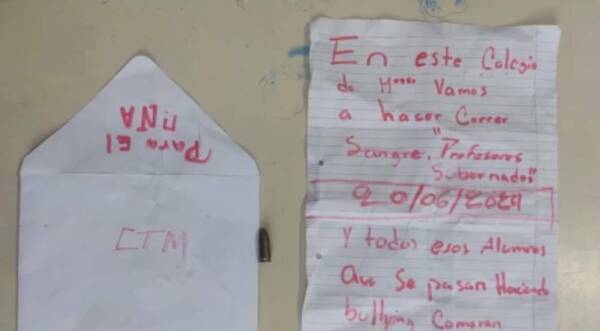 Para El
liNA
CTM
En este Colegio
de M**** Vamos
a hacer Correr
Sangre. "Profesores
Subornados"
20/06/2024
Y todos esos Alumnos
Que Se pasan Haciendo
bullying Comoran